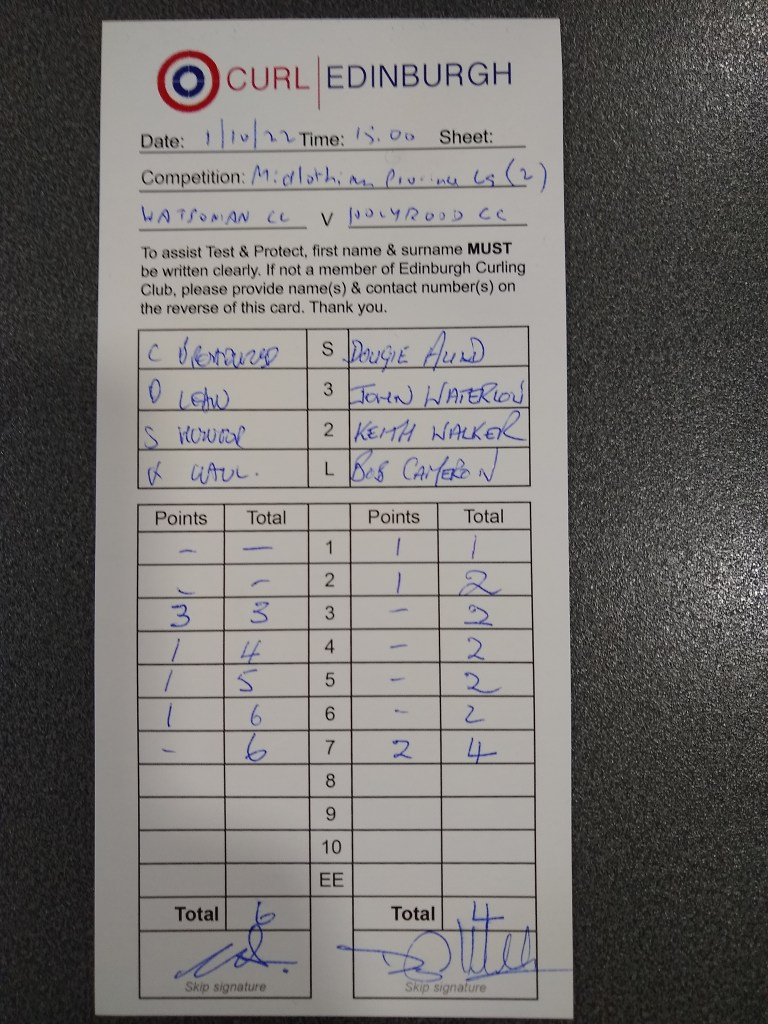 CURL EDINBURGH
Date: 1/10/22 Time: 15.00 Sheet:
Competition: Midlothian Province Lg (2)
WATSONIAN CC V HOLYROOD CC
To assist Test & Protect, first name & surname MUST
be written clearly. If not a member of Edinburgh Curling
Club, please provide name(s) & contact number(s) on
the reverse of this card. Thank you.
C S DOUGIE AULD
D 3 JOHN WATERLOW
S 2 KEITH WALKER
L BOB CAMERON
Points Total Points Total
- - 1 1 1
- - 2 1 2
3 3 3 - 2
1 4 4 - 2
1 5 5 - 2
1 6 6 - 2
- 6 7 2 4
8
9
10
EE
Total 6 Total 4
Skip signature Skip signature